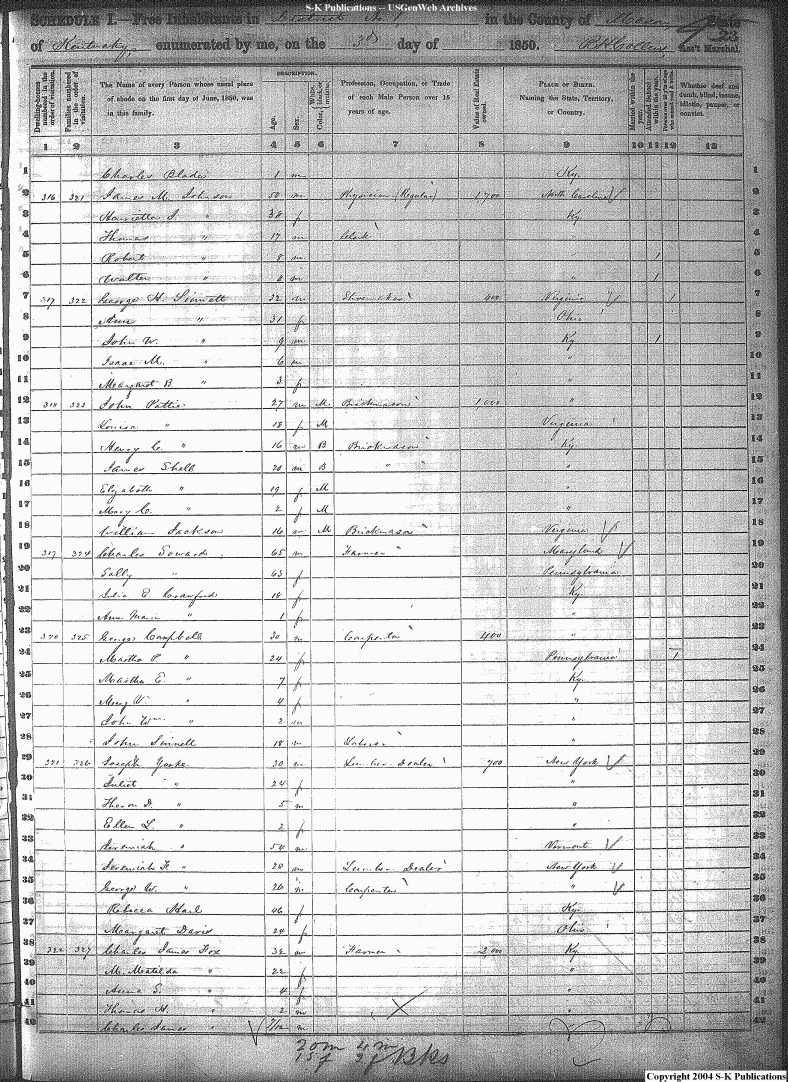 S-K Publications -- USGenWeb Archives
SCHEDULE I.—Free Inhabitants in District No 1 in the County of Mason State
23
of Kentucky, enumerated by me, on the 3d day of 1850. Ass't Marshal.
Dwelling-houses numbered in the order of visitation. Families numbered in the order of visitation. The Name of every Person whose usual place of abode on the first day of June, 1850, was in this family. DESCRIPTION. Age. Sex. Color, White, black, or mulatto. Profession, Occupation, or Trade of each Male Person over 15 years of age. Value of Real Estate owned. PLACE OF BIRTH. Naming the State, Territory, or Country. Married within the year. Attended School within the year. Whether deaf and dumb, blind, insane, idiotic, pauper, or convict.
1 2 3 4 5 6 7 8 9 10 11 12 13
1 Charles Blades 1 m Ky. 1
2 316 321 James M. Johnson 50 m Physician (Regular) 1,700 North Carolina 2
3 Henrietta S. " 38 f Ky. 3
4 Thomas " 17 m Clerk 4
5 Robert " 8 m 1 5
6 Walter " m " 1 6
7 317 322 George H. Sinnett 32 m Shoemaker 400 Virginia 1 7
8 Ann " 31 f Ohio 8
9 John W. " 9 m Ky. 1 9
10 Isaac M. " 6 m " 10
11 Margaret B " 3 f " 11
12 318 323 John Pattie 27 m M Brickmason 1000 " 12
13 Louisa " 18 f M Virginia 13
14 Henry C. " 16 m B Brickmason Ky. 14
15 James Shell 20 m B " " 15
16 Elizabeth " 19 f M " 16
17 Mary C. " 2 f M " 17
18 William Jackson 16 m M Brickmason Virginia 18
19 324 Charles 65 m Farmer Maryland 19
20 Sally " 63 f Pennsylvania 20
21 Julia E. Crawford 18 f Ky. 21
22 Ann Maria " 1 f " 22
23 320 325 George Campbell 30 m Carpenter 400 " 23
24 Martha P. " 24 f Pennsylvania 1 24
25 Martha E. " 7 f Ky. 25
26 Mary V. " 4 f " 26
27 John Wm " 2 m " 27
28 John Sinnett 18 m Laborer " 28
29 321 326 Joseph Yorke 30 m Lumber Dealer 700 New York 29
30 Juliet " 24 f " 30
31 Theron D. " 5 m " 31
32 Ellen L. " 2 f " 32
33 Jeremiah " 54 m Vermont 33
34 Jeremiah F. " 28 m Lumber Dealer New York 34
35 George W. " 26 m Carpenter " 35
36 Rebecca 46 f Ky. 36
37 Margaret Davis 24 f Ohio 37
38 322 327 Charles James Fox 32 m Farmer 2,000 Ky. 38
39 M. Matilda " 22 f " 39
40 Anna E. " 4 f " 40
41 Thomas H. " 2 m " 41
42 Charles James " m 42
20 m 4 m
15 f 3 f Bks
Copyright 2004 S-K Publications